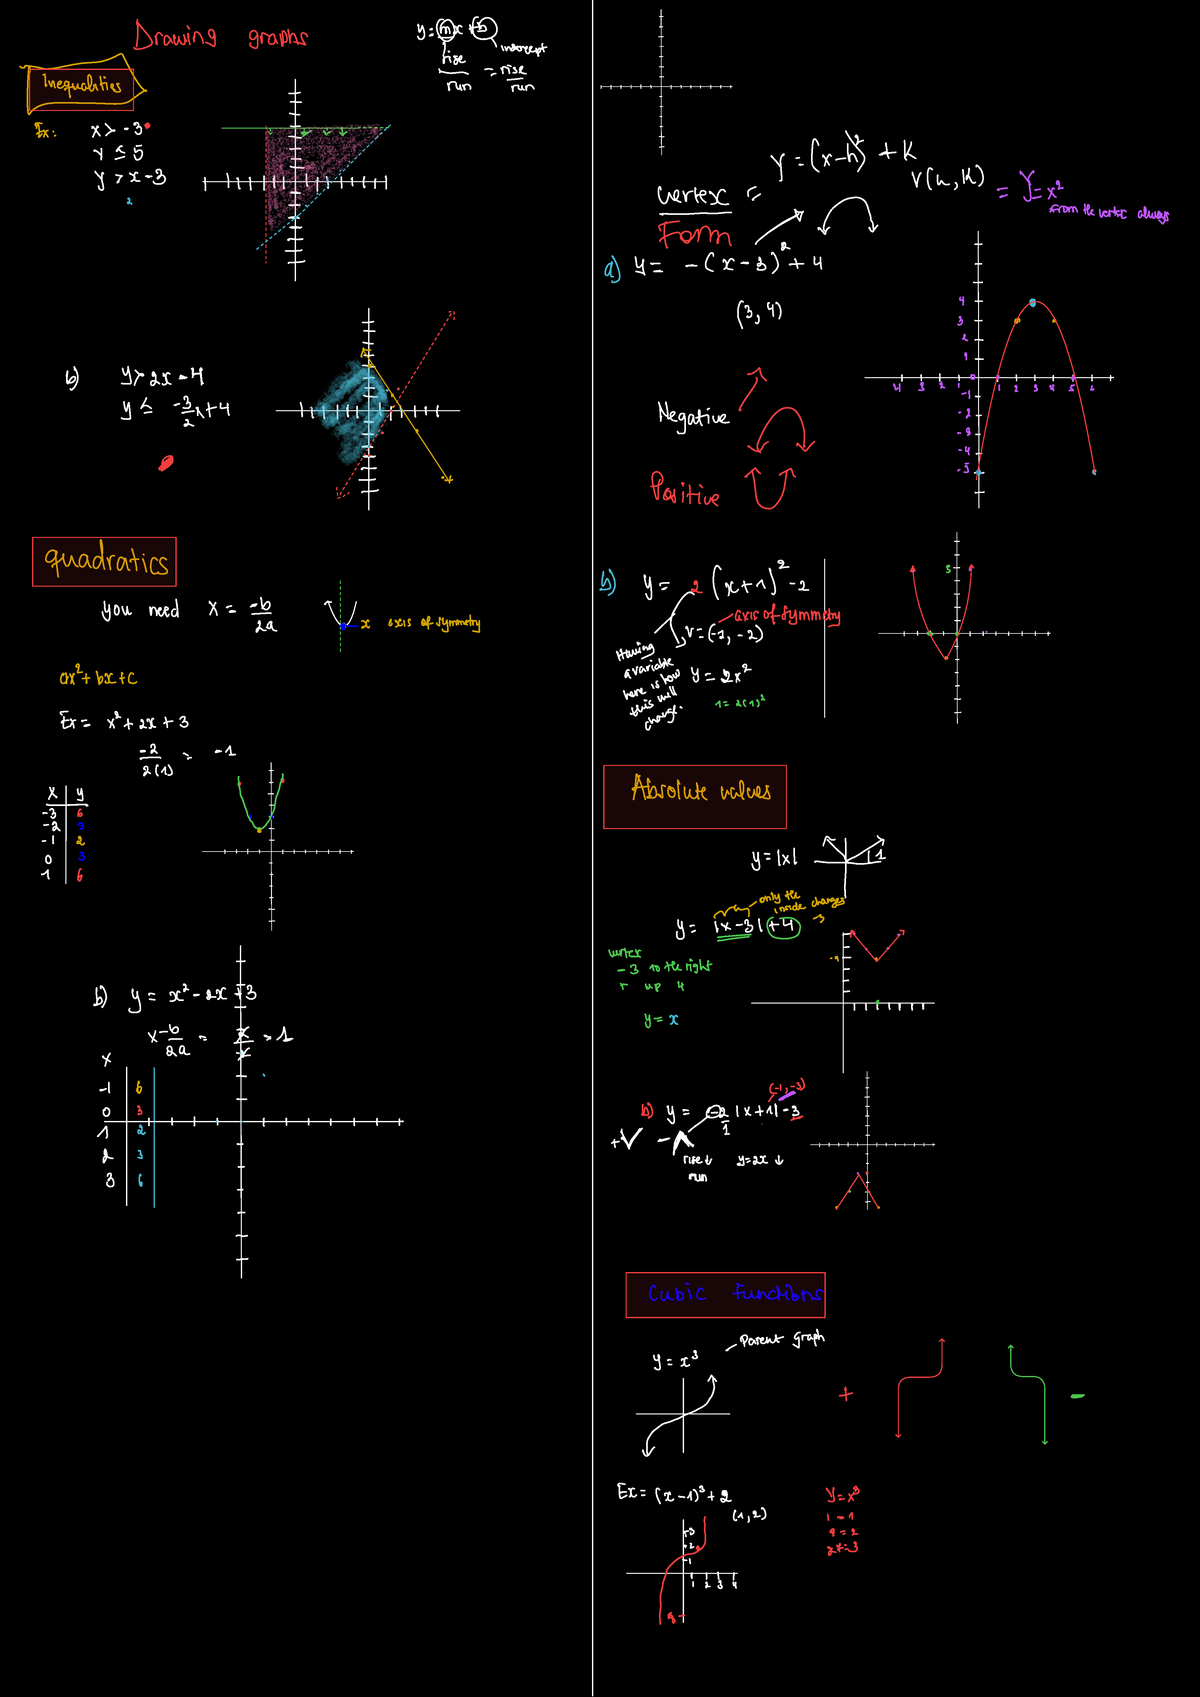 Drawing graphs
y = mx + b
intercept
rise
run
= rise
run
Inequalities
Ex:
x > -3
y ≤ 5
y > x - 3
2
b)
y > 2x - 4
y ≤ -3/2 x + 4
quadratics
you need x = -b/2a
x axis of symmetry
ax² + bx + c
Ex = x² + 2x + 3
-2/2(1) = -1
x | y
-3 | 6
-2 | 3
-1 | 2
0 | 3
1 | 6
b) y = x² - 2x + 3
x -b/2a = 2/2 = 1
x
-1 | 6
0 | 3
1 | 2
2 | 3
3 | 6
vertex = y = (x-h)² + K
V(h, K)
= y = x²
from the vertex always
Form
a) y = -(x-3)² + 4
(3, 4)
4
3
2
1
-1
-2
-3
-4
-5
4 3 2 1 1 2 3 4 5 6
Negative
Positive
b) y = 2(x+1)² - 2
axis of symmetry
V = (-1, -2)
Having
a variable
here is how
this will
change.
y = 2x²
1 = 2(1)²
5
Absolute values
y = |x|
1
only the
inside changes
-3
y = |x-3| + 4
vertex
- 3 to the right
r up 4
y = x
-4
(-1, -3)
b) y = -2/1 |x+1| - 3
+
-
rise ↓
run
y = 2x ↓
Cubic functions
Parent graph
y = x³
+
-
Ex = (x-1)³ + 2
(1, 2)
3
2
1
1 2 3 4
y = x³
1 = 1